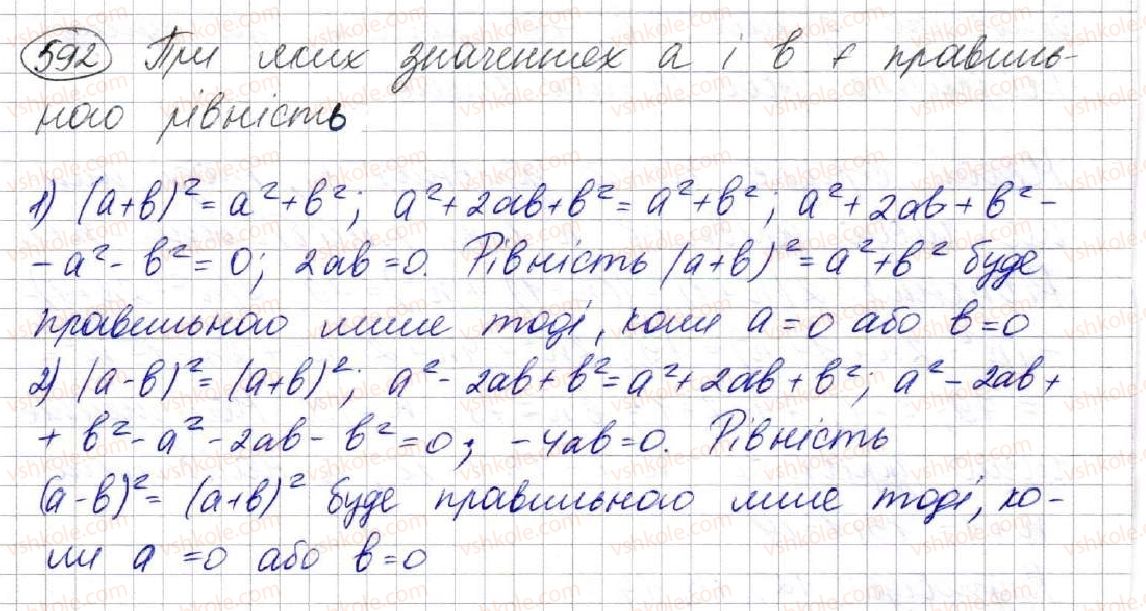 592 При яких значеннях a і b є правиль-
ною рівність
1) (a+b)²=a²+b²; a²+2ab+b²=a²+b²; a²+2ab+b²-
-a²-b²=0; 2ab=0. Рівність (a+b)²=a²+b² буде
правильною лише тоді, коли a=0 або b=0
2) (a-b)²=(a+b)²; a²-2ab+b²=a²+2ab+b²; a²-2ab+
+b²-a²-2ab-b²=0; -4ab=0. Рівність
(a-b)²=(a+b)² буде правильною лише тоді, ко-
ли a=0 або b=0